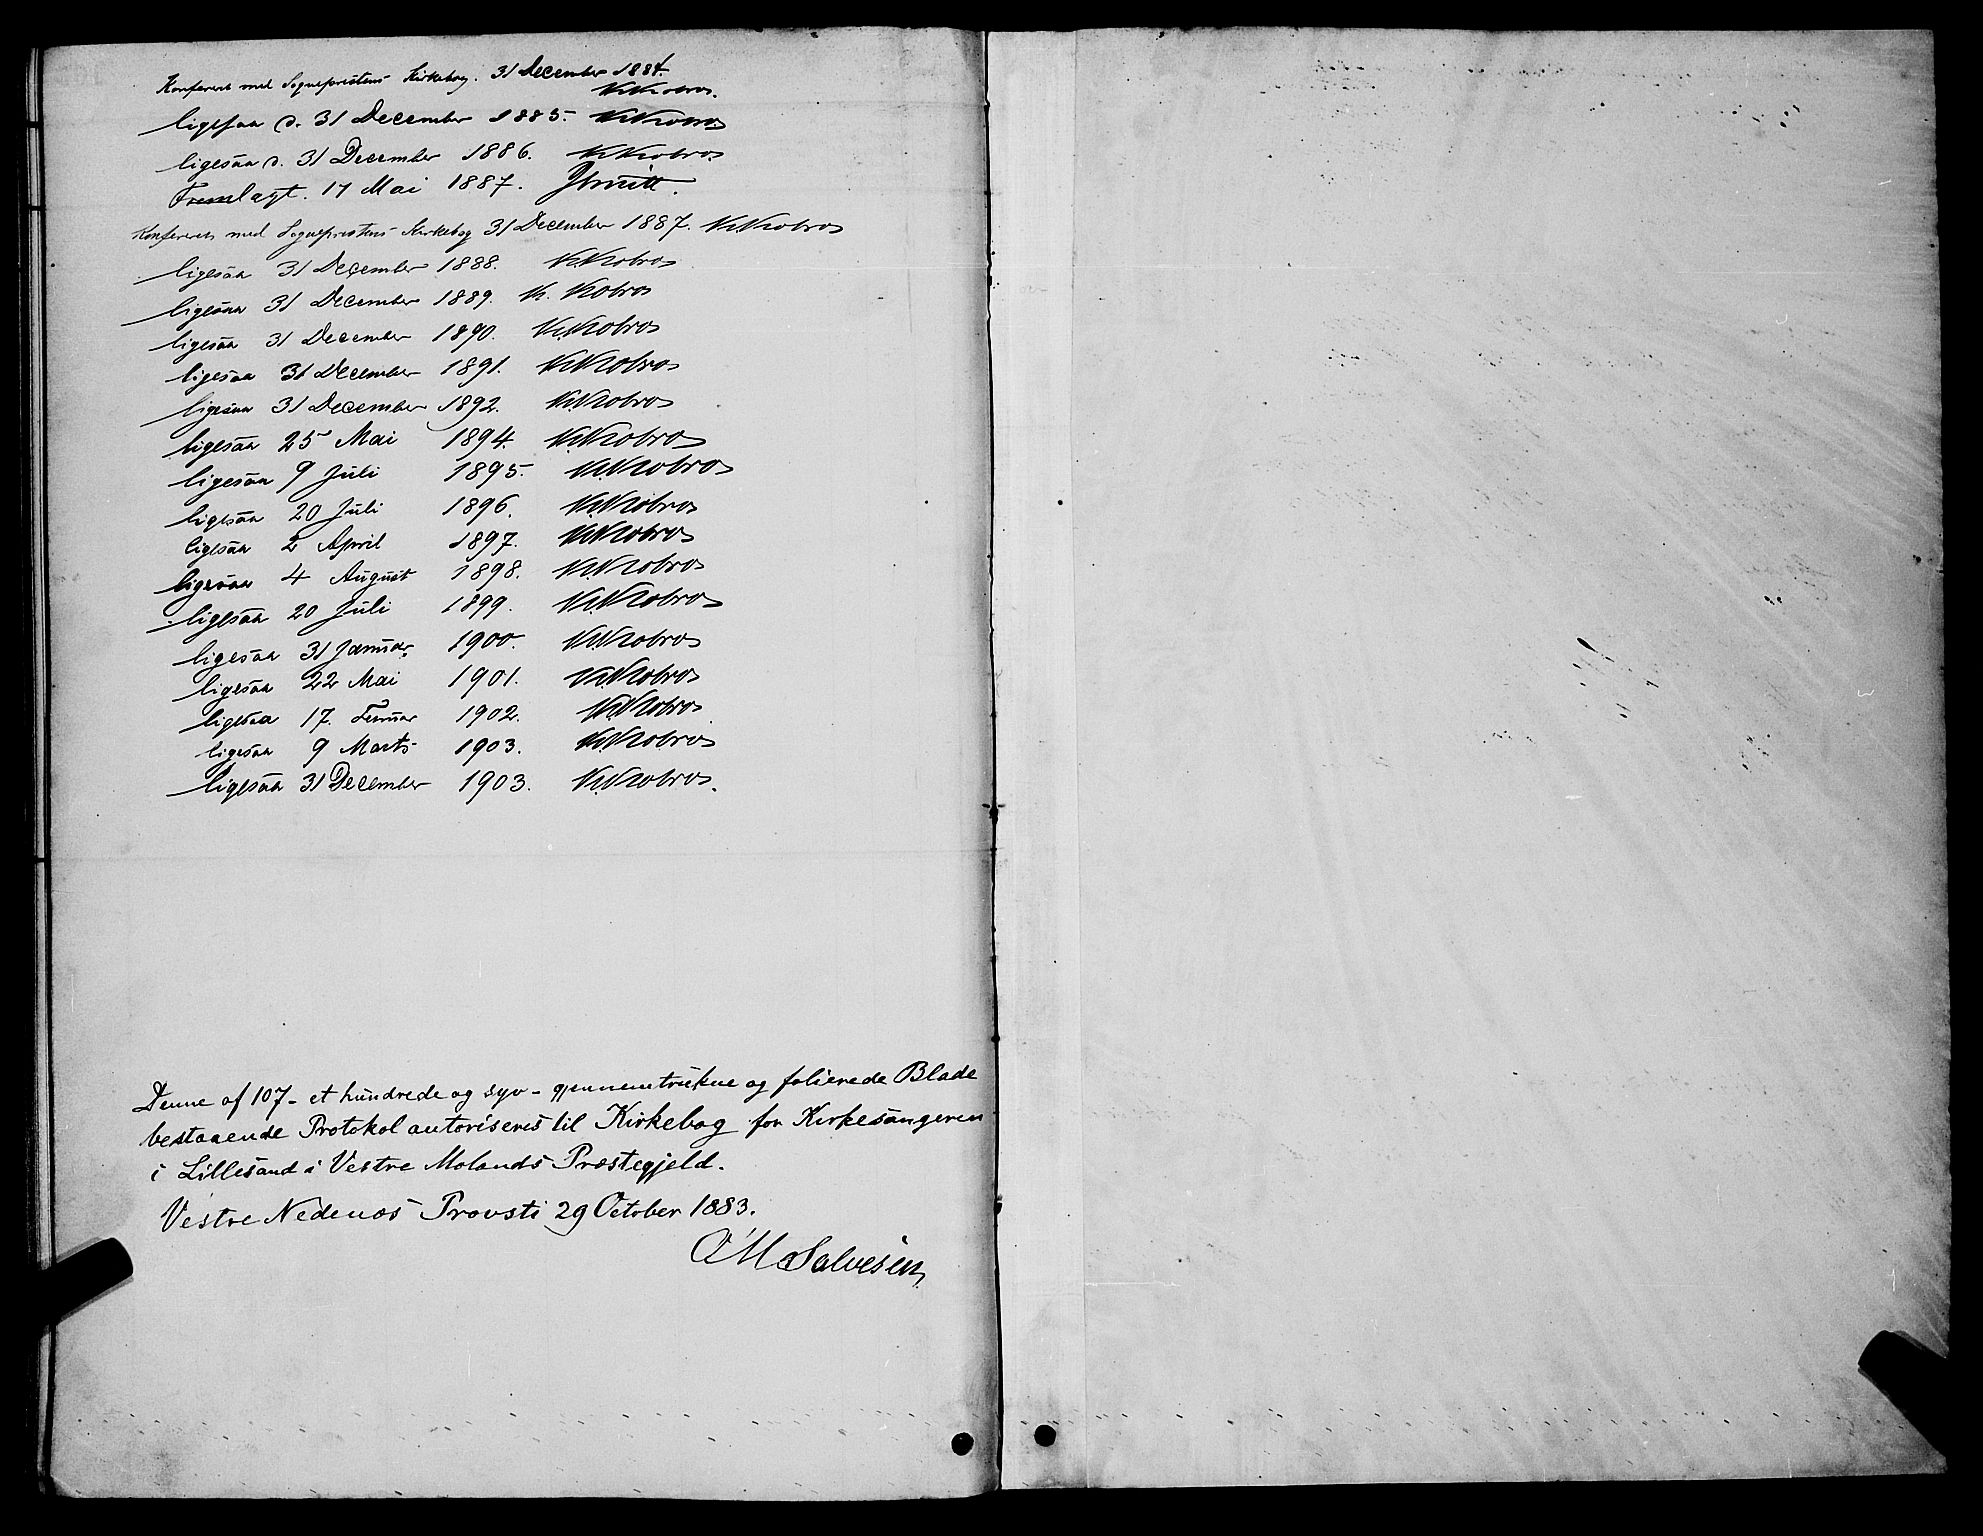 Konfereret med Sognepræstens Kirkebog. 31 December 1884.
K. Kobro
ligesaa d. 31 December 1885. K. Kobro
ligesaa d. 31 December 1886. K. Kobro
Fremlagt. 17 Mai 1887.
Konfereret med Sognepræstens Kirkebog 31 December 1887. K. Kobro
ligesaa 31 December 1888. K. Kobro
ligesaa 31 December 1889. K. Kobro
ligesaa 31 December 1890. K. Kobro
ligesaa 31 December 1891. K. Kobro
ligesaa 31 December 1892. K. Kobro
ligesaa 25 Mai 1894. K. Kobro
ligesaa 9 Juli 1895. K. Kobro
ligesaa 20 Juli 1896. K. Kobro
ligesaa 2 April 1897. K. Kobro
ligesaa 4 August 1898. K. Kobro
ligesaa 20 Juli 1899. K. Kobro
ligesaa 31 Januar 1900. K. Kobro
ligesaa 22 Mai 1901. K. Kobro
ligesaa 17. 1902. K. Kobro
ligesaa 9 Marts 1903. K. Kobro
ligesaa 31 December 1903. K. Kobro.
Denne af 107 - et hundrede og syv - gjennemtrukne og folierede Blade
bestaaende Protokol autoriseres til Kirkebog for Kirkesangeren
i Lillesand i Vestre Molands Præstegjeld.
Vestre Nedenæs Provsti 29 October 1883.
O M Salvesen